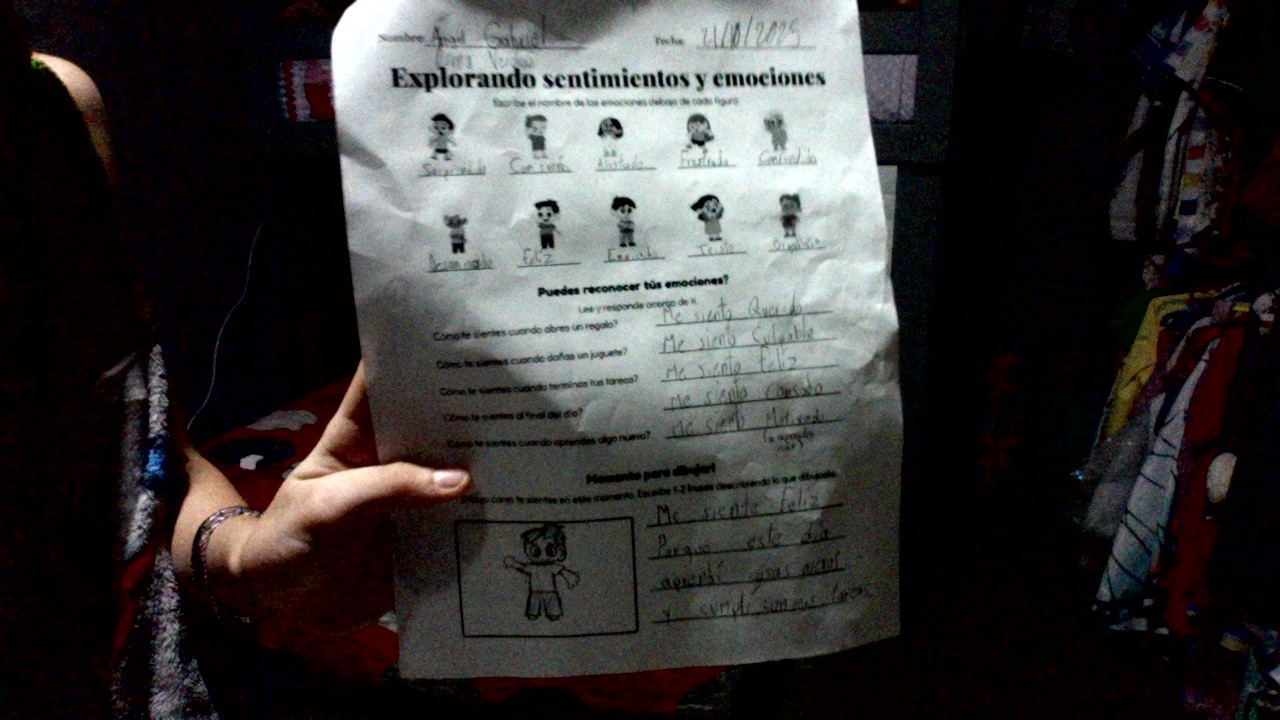 Nombre: Angel Gabriel Fecha: 21/10/2025
Explorando sentimientos y emociones
Escribe el nombre de las emociones debajo de cada figura
Asustado Frustrado Confundido
Feliz Triste Orgulloso
Puedes reconocer tús emociones?
Lee y responde acerca de ti.
Cómo te sientes cuando abres un regalo? Me siento Querido
Cómo te sientes cuando dañas un juguete? Me siento Culpable
Cómo te sientes cuando terminas tus tareas? Me siento Feliz
Cómo te sientes al final del día? Me siento Cansado
Cómo te sientes cuando aprendes algo nuevo? Me siento Motivado
Momento para dibujar!
Dibuja como te sientes en este momento. Escribe 1-2 frases describiendo lo que dibujaste.
Me siento feliz
Porque este día
aprendí
y cumplí con mis tareas